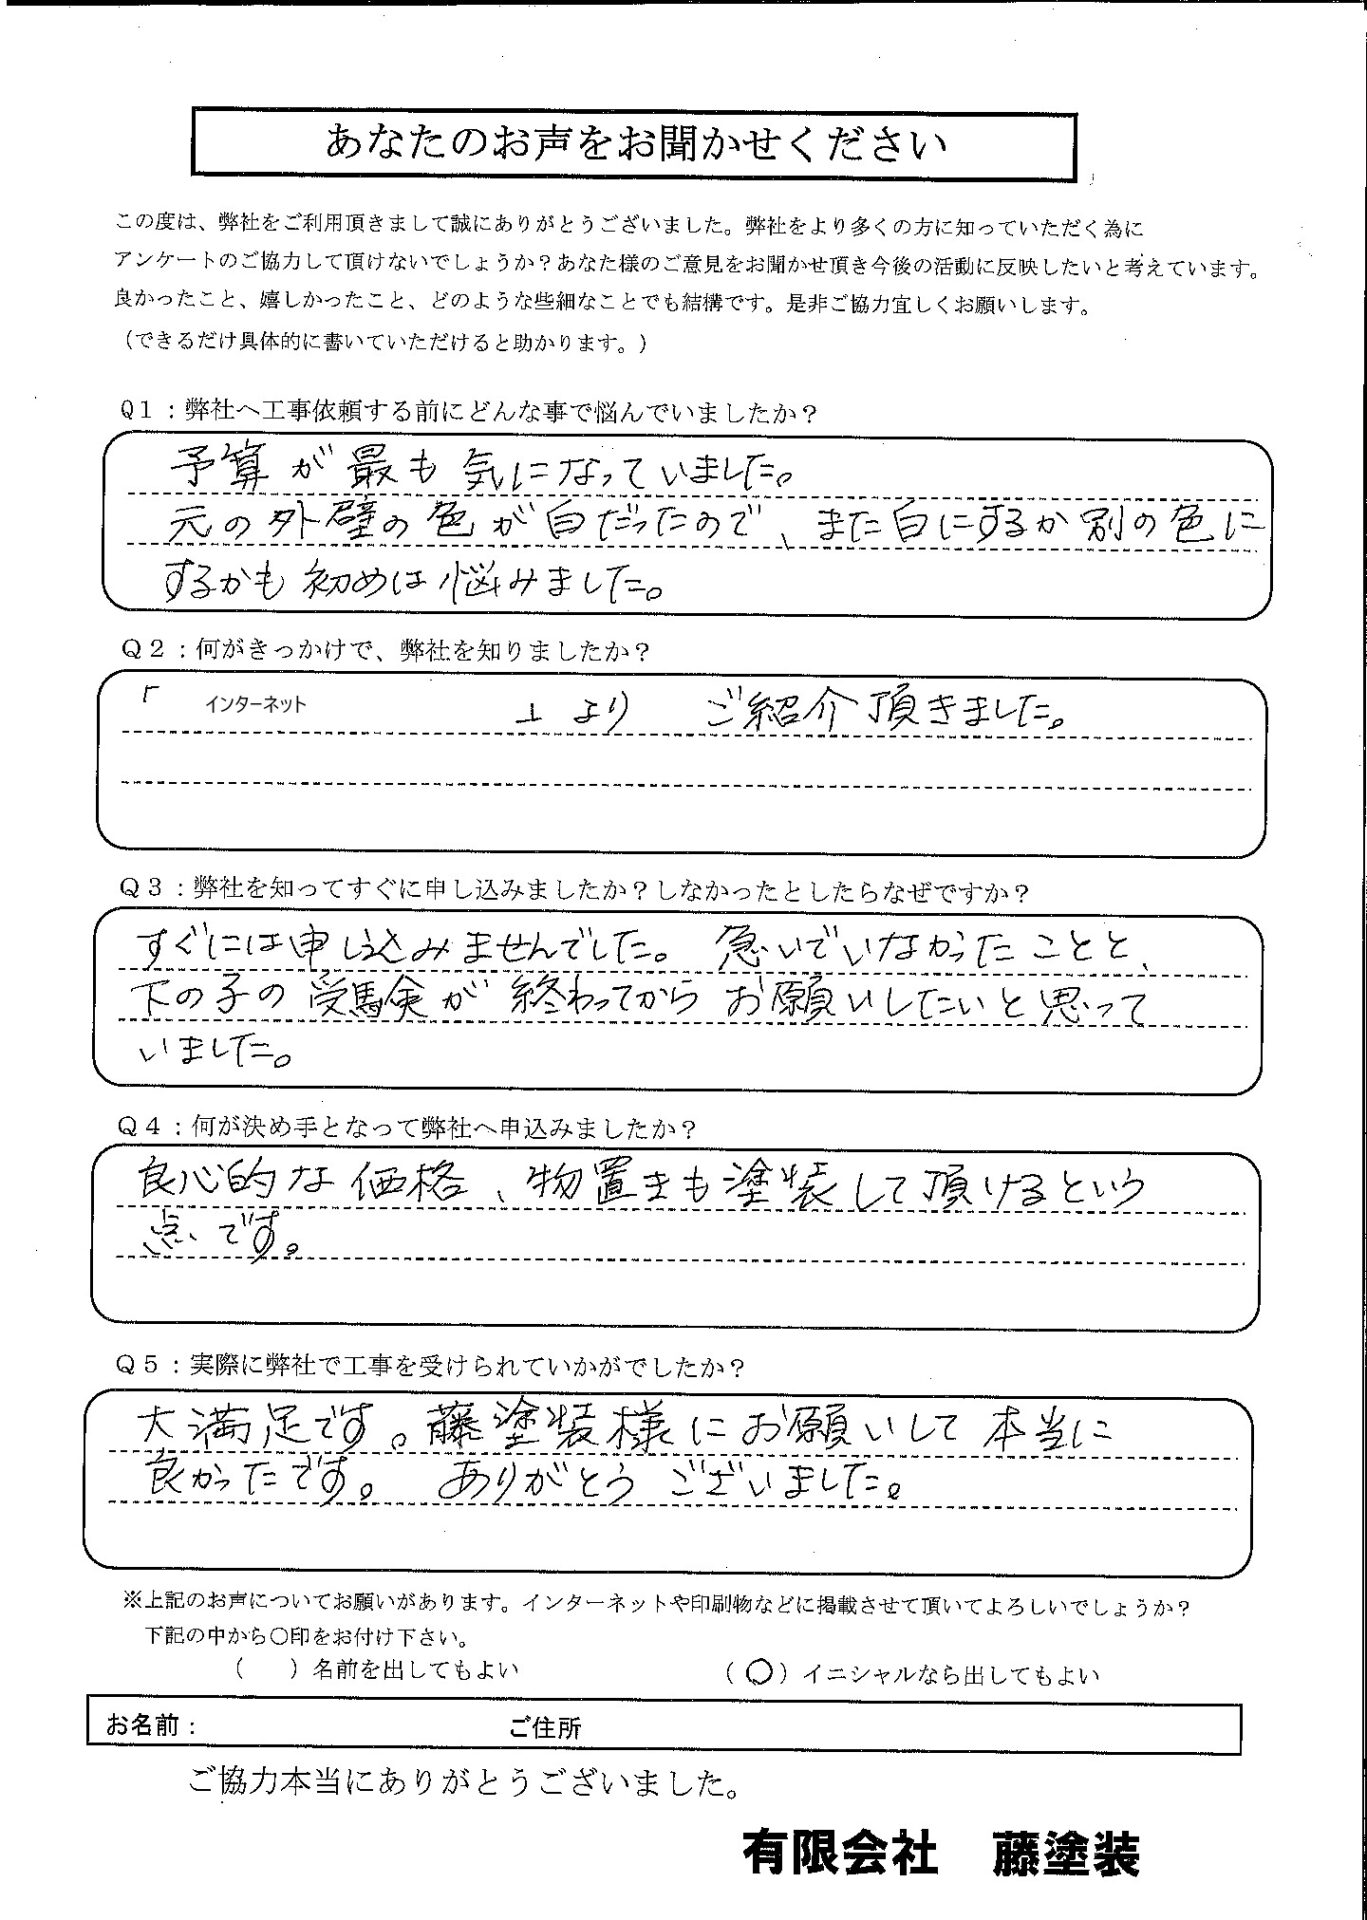 あなたのお声をお聞かせください
この度は、弊社をご利用頂きまして誠にありがとうございました。弊社をより多くの方に知っていただく為に
アンケートのご協力して頂けないでしょうか？あなた様のご意見をお聞かせ頂き今後の活動に反映したいと考えています。
良かったこと、嬉しかったこと、どのような些細なことでも結構です。是非ご協力宜しくお願いします。
（できるだけ具体的に書いていただけると助かります。）
Ｑ１：弊社へ工事依頼する前にどんな事で悩んでいましたか？
予算が最も気になっていました。
元の外壁の色が白だったので、また白にするか別の色に
するかも初めは悩みました。
Ｑ２：何がきっかけで、弊社を知りましたか？
「インターネット」より ご紹介頂きました。
Ｑ３：弊社を知ってすぐに申し込みましたか？しなかったとしたらなぜですか？
すぐには申し込みませんでした。急いでいなかったことと、
下の子の受験が終わってからお願いしたいと思って
いました。
Ｑ４：何が決め手となって弊社へ申込みましたか？
良心的な価格、物置きも塗装して頂けるという
点です。
Ｑ５：実際に弊社で工事を受けられていかがでしたか？
大満足です。藤塗装様にお願いして本当に
良かったです。ありがとうございました。
※上記のお声についてお願いがあります。インターネットや印刷物などに掲載させて頂いてよろしいでしょうか？
下記の中から〇印をお付け下さい。
（　）名前を出してもよい （〇）イニシャルなら出してもよい
お名前： ご住所
ご協力本当にありがとうございました。
有限会社 藤塗装